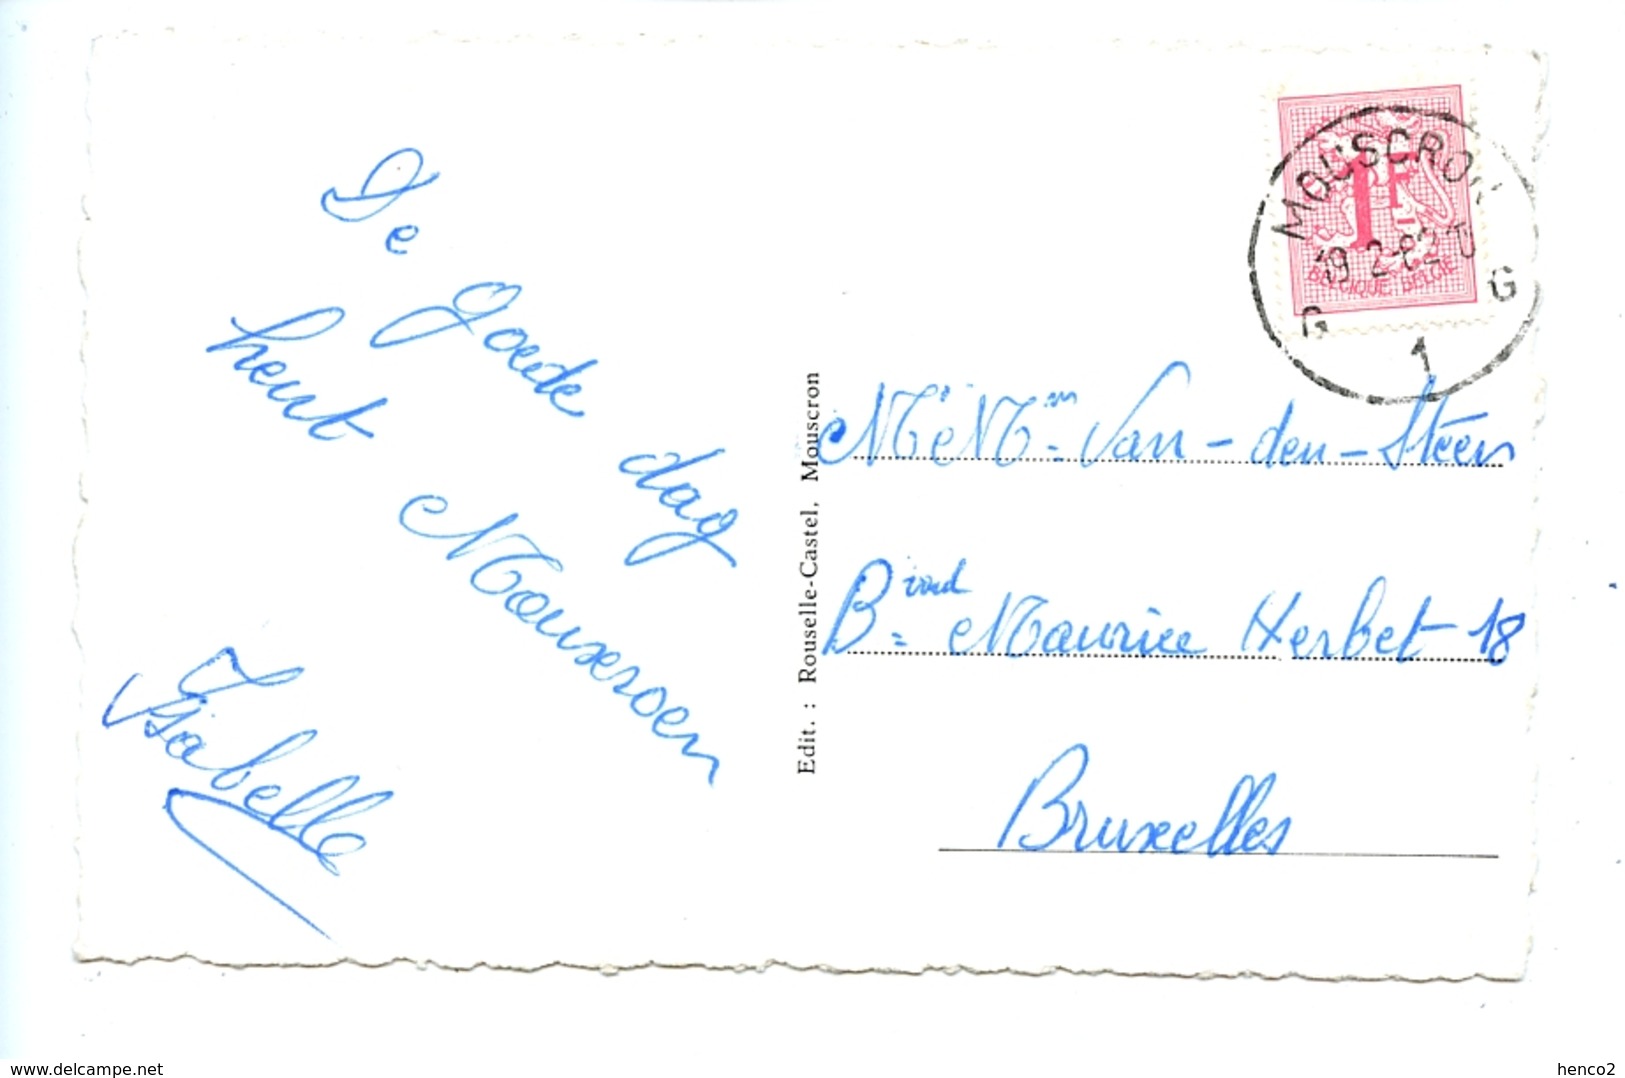 De goede dag
heut Mouxeroen
Isabelle
Edit. : Rouselle-Castel, Mouscron
MOUSCRON
19-2-62 10
G 1 G
1F
BELGIQUE BELGIE
Mr & Mme Van-den-Stéen
Bvard Maurice Herbet 18
Bruxelles
www.delcampe.net
henco2